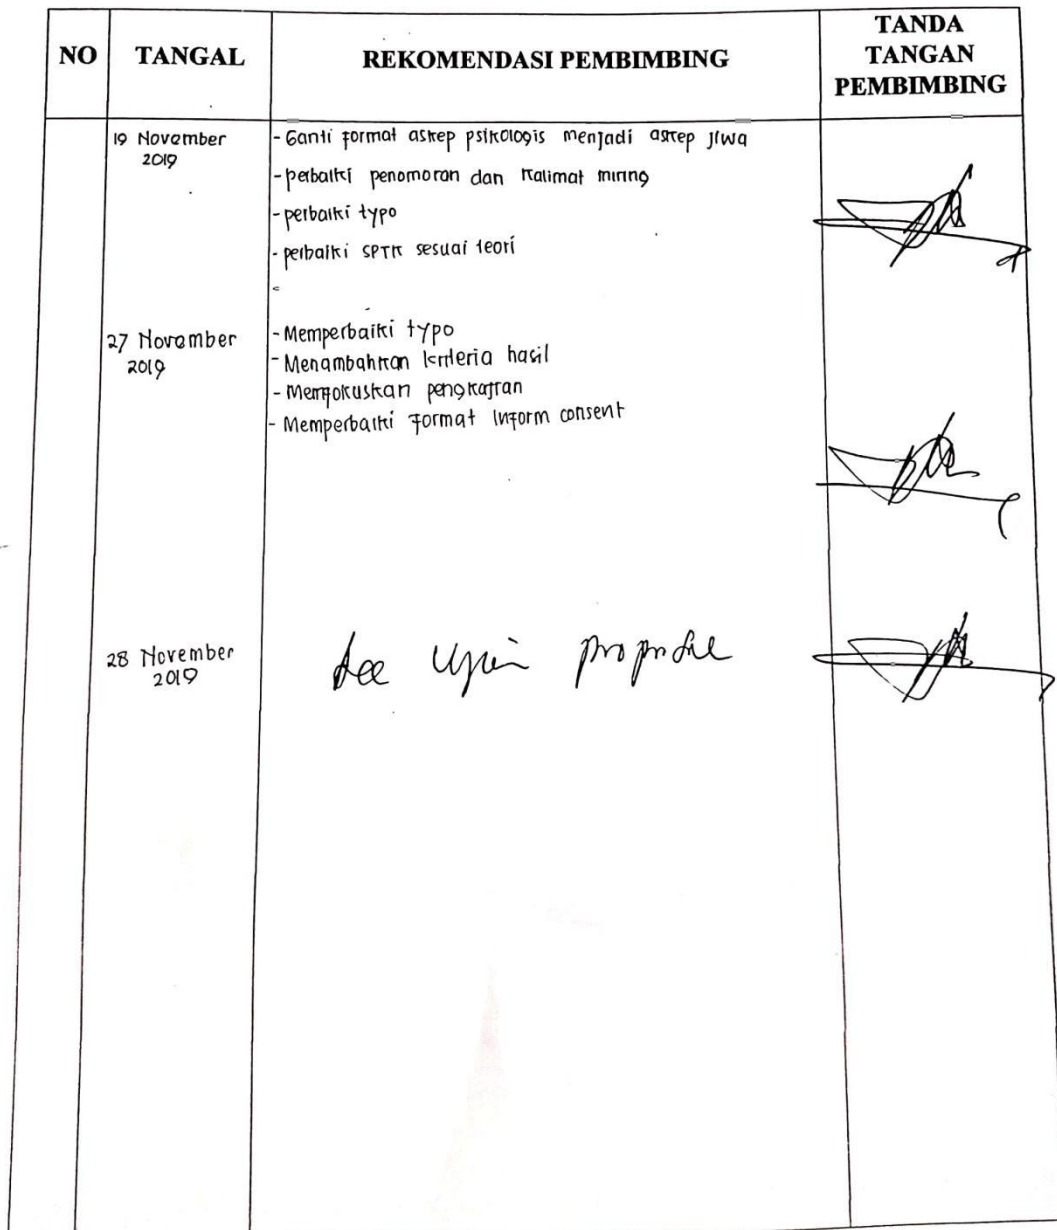 NO
TANGAL
REKOMENDASI PEMBIMBING
TANDA
TANGAN
PEMBIMBING
19 November
2019
- Ganti format askep psikologis menjadi askep jiwa
- perbaiki penomoran dan kalimat miring
- perbaiki typo
- perbaiki SPTK sesuai teori
27 November
2019
- Memperbaiki typo
- Menambahkan kriteria hasil
- Memfokuskan pengkajian
- Memperbaiki format inform consent
28 November
2019
Acc Ujian